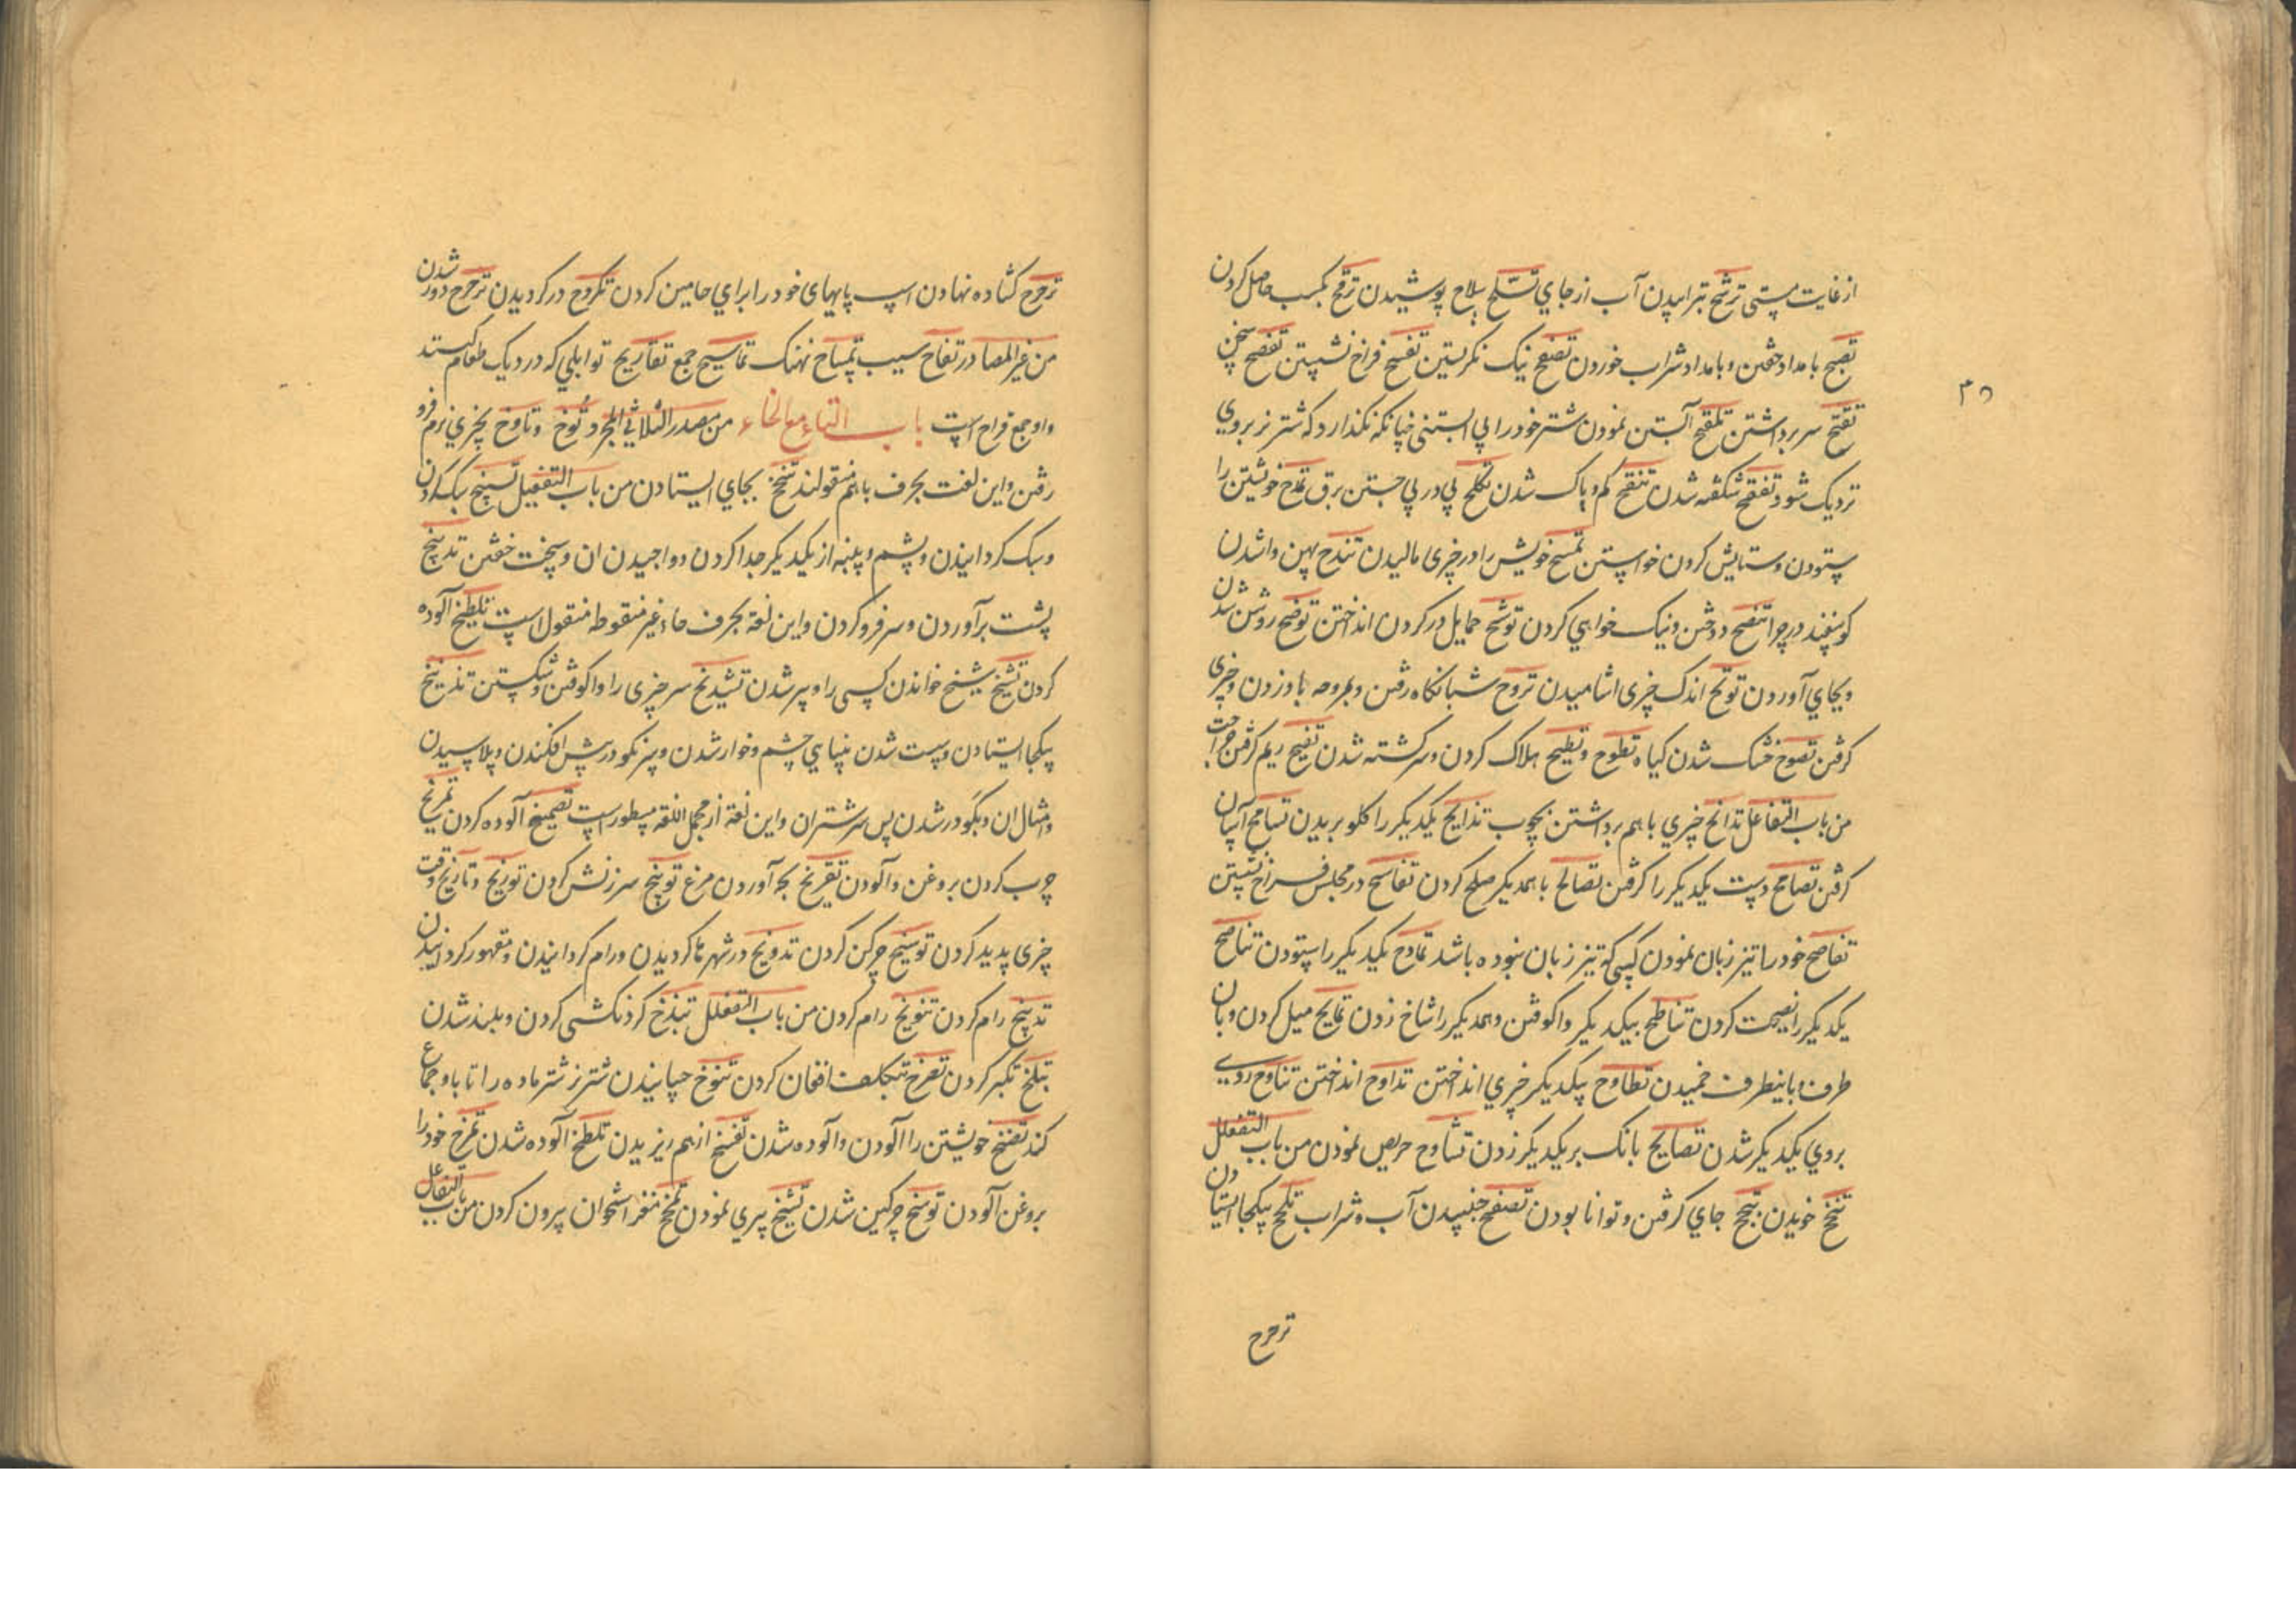 از غایت مستی ترشح تراپیدن آب از جاي تسلح سلاح پوشیدن ترقح کسب حاصل کردن
تصبح بامداد خفتن و بامداد شراب خوردن تصفح نیک نکریستن تفسح فراخ نشستن تفصح سخن
تقمح سر برداشتن تلقح آبستن نمودن شتر خود را بی آبستنی چنانکه نکذارد که شتر نر بروي
نزدیک شود تفقح شکفته شدن تنقح کم و پاک شدن تکلح پی در پی جستن برق تمدح خویشتن را
ستودن و ستایش کردن خواستن تمسح خویش را در چیزی مالیدن تندح پهن واشدن
کوسفند در چرا تنصح دوختن و نیک خواهي کردن توشح حمایل در کردن انداختن توضح روشن شدن
و بجاي آوردن توتح اندک چیزی اشامیدن تروح شبانکاه رفتن و بمروحه باد زدن و چیزی
کرفتن تصوح خشک شدن کیاه تطوح و تطیح هلاک کردن و سرکشته شدن تقیح ریم کرفتن جراحت
من باب التفاعل تدالح چیزي باهم برداشتن بچوب تذابح یکدیکر را کلو بریدن تسامح آسان
کرفتن تصافح دست یکدیکر را کرفتن تصالح با همدیکر صلح کردن تفاسح در مجلس فراخ نشستن
تفاصح خود را تیز زبان نمودن کسی که تیز زبان نبوده باشد تمادح یکدیکر را ستودن تناصح
یکدیکر را نصیحت کردن تناطح بیکدیکر واکوفتن و همدیکر را شاخ زدن تمایح میل کردن و بان
طرف و باینطرف خمیدن تطاوح بیکدیکر چیزي انداختن تداوح انداختن تناوح روي
بروي یکدیکر شدن تصایح بانک بر یکدیکر زدن تشاوح حریص نمودن من باب التفعلل
تنحنح خویدن تبحبح جاي کرفتن و توانا بودن تصفح جنبیدن آب و شراب تلحلح بیکجا ایستادن
ترحرح
۳۵
ترحرح کشاده نهادن اسپ پایهای خود را براي حامین کردن تکروح در کردیدن تزحزح دور شدن
من غیر المصادر تفاح سیب تمساح نهنک تماسیح جمع تقازیح توابلي که در دیک طعام کنند
و او جمع قزاح است باب التاء مع الخاء من مصدر الثلاثي المجرد توخ و تاوخ بچیزي نرم فرو
رفتن و این لغت بحرف باهم منقولند تنخ بجاي ایستادن من باب التفعیل تسبیخ سبک کردن
و سبک کردانیدن و پشم و پنبه از یکدیکر جدا کردن و واجیدن ان و سخت خفتن تدبیخ
پشت برآوردن و سر فرو کردن و این لغة بحرف حاء غیر منقوطه منقول است تلطیخ آلوده
کردن تشییخ شیخ خواندن کسی را و پیر شدن تشدیخ سر چیزی را واکوفتن و شکستن تذریخ
بیکجا ایستادن و سست شدن بینایي چشم و خوار شدن و سر نکو در پیش افکندن و پلاسیدن
و امثال ان و بکو در شدن پس سر شتران و این لغة از مجمل اللغة مسطور است تضمیخ آلوده کردن تمریخ
چرب کردن بروغن و آلودن تفریخ بچه آوردن مرغ توبیخ سرزنش کردن توریخ و تاریخ وقت
چیزی پدید کردن توسیخ چرکن کردن تدویخ در شهر ها کردیدن و رام کردانیدن و مقهور کردانیدن
تدییخ رام کردن تنویخ رام کردن من باب التفعلل تبذخ کردنکشی کردن و بلند شدن
تبلخ تکبر کردن تصرخ بتکلف افغان کردن تنوخ خپانیدن شتر نر شتر ماده را تا با او جماع
کند تضمخ خویشتن را آلودن و آلوده شدن تفسخ از هم ریزیدن تلطخ آلوده شدن تمرخ خود را
بروغن آلودن توسخ چرکین شدن تشیخ پیري نمودن تمخخ مغز استخوان بیرون کردن من باب التفاعل